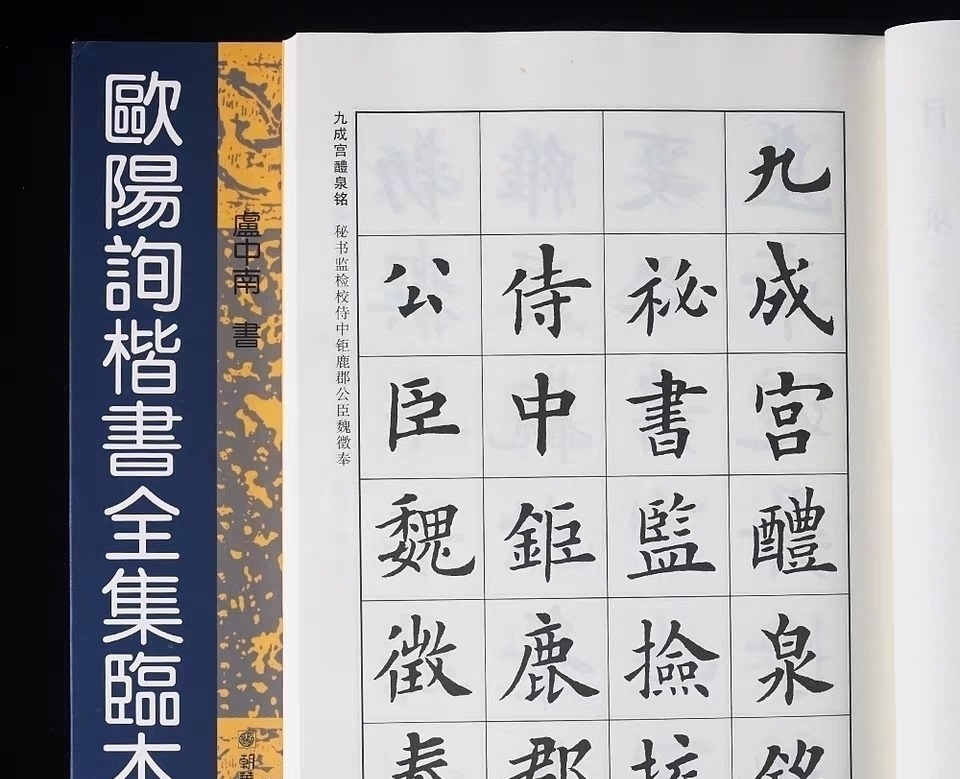 歐陽詢楷書全集臨本
盧中南 書
朝華
九成宫醴泉铭 秘书监检校侍中钜鹿郡公臣魏徵奉
九成宮醴泉銘
祕書監撿校
侍中鉅鹿郡
公臣魏徵奉